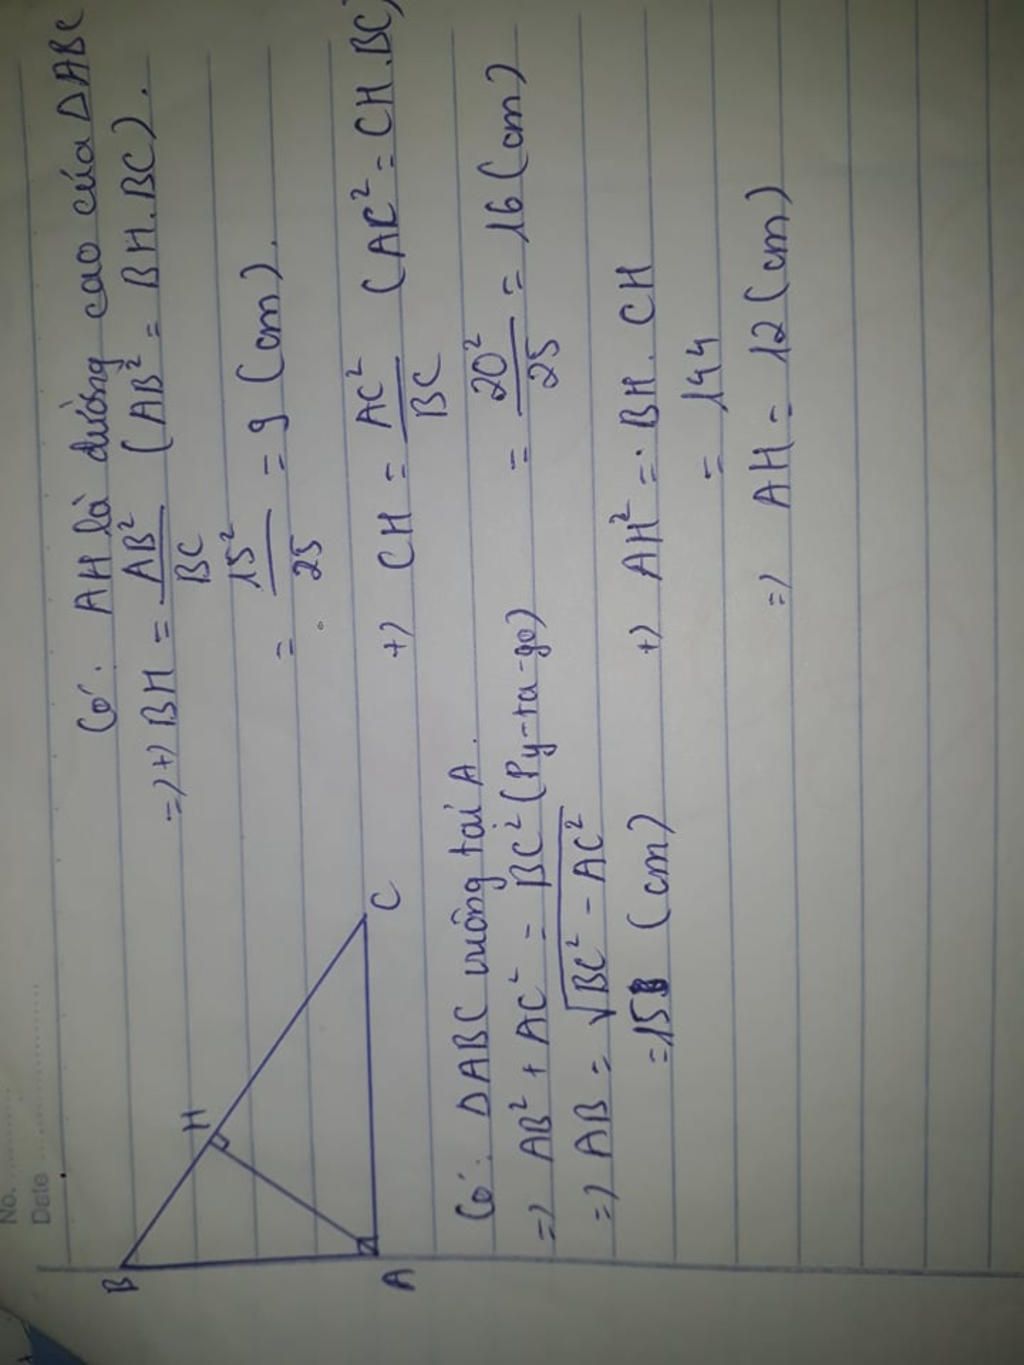 No.
Date
B
H
A
C
Có: ΔABC vuông tại A.
=) AB² + AC² = BC² (Py-ta-go)
=) AB = √BC² - AC²
=15 (cm)
Có: AH là đường cao của ΔABC
=)+) BH = AB²/BC (AB² = BH.BC).
= 15²/25 = 9 (cm).
+) CH = AC²/BC (AC² = CH.BC)
= 20²/25 = 16 (cm)
+) AH² = BH. CH
= 144
=) AH = 12 (cm)